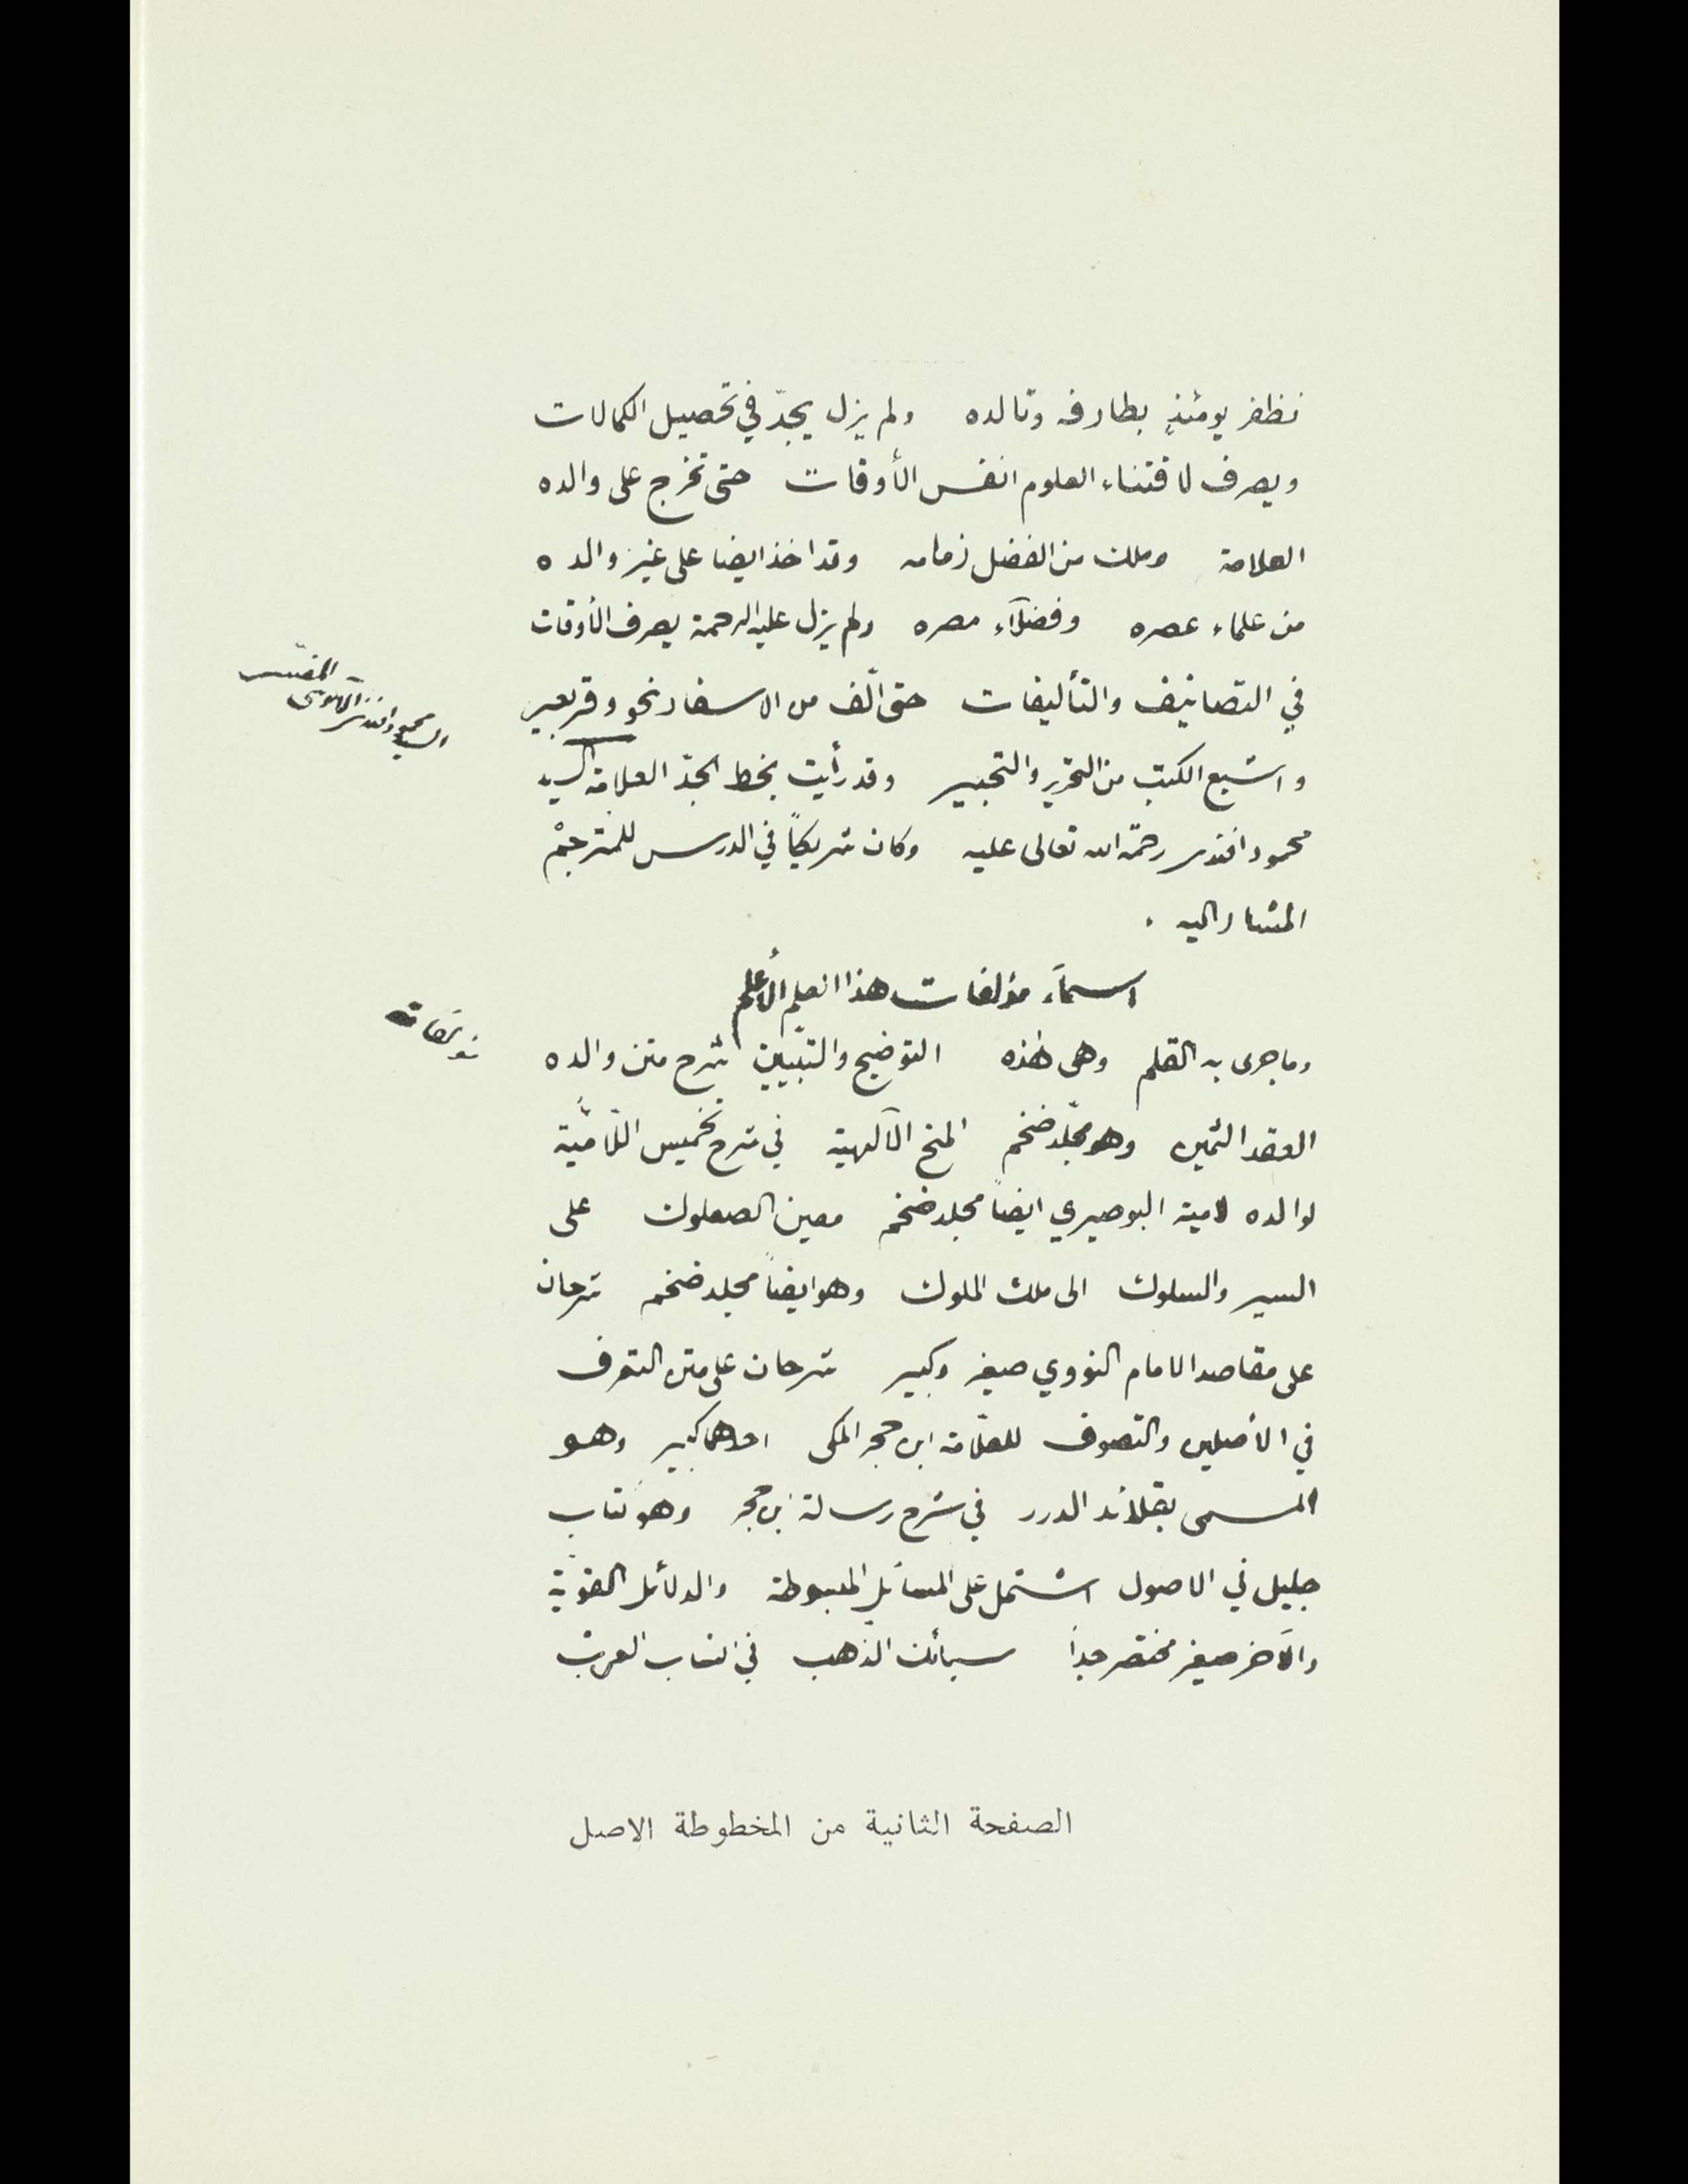 نظفر يومئذٍ بطارفه وتالده ولم يزل يجدّ في تحصيل الكمالات
ويصرف لاقتناء العلوم انفس الأوقات حتى تخرج على والده
العلامة وملك من الفضل زمامه وقد اخذ ايضا على غير والده
من علماء عصره وفضلآء مصره ولم يزل عليه الرحمة يصرف الأوقات
في التصانيف والتأليفات حتى الّف من الاسفار نحو وقر بعير
واشبع الكتب من التحرير والتحبير وقد رأيت بخط الجدّ العلامة السيد
محمود افندى رحمة الله تعالى عليه وكان شريكاً في الدرس للمترجم
المشار اليه .
المفسّر
السيد محمود افندى الآلوسى
اسمآء مؤلفات هذا العلم الأعلم
وما جرى به القلم وهى هذه التوضيح والتبيين شرح متن والده
العقد الثمين وهو مجلّد ضخم المنح الآلهية في شرح تخميس اللّاميّة
لوالده لامية البوصيري ايضاً مجلد ضخم معين الصعلوك على
السير والسلوك الى ملك الملوك وهو ايضاً مجلد ضخم شرحان
على مقاصد الامام النووي صغير وكبير شرحان على متن التعرف
في الأصلين والتصوف للعلّامة ابن حجر المكى احدهما كبير وهو
المسمى بقلائد الدرر في شرح رسالة ابن حجر وهو كتاب
جليل في الاصول اشتمل على المسائل المبسوطة والدلائل القويّة
والآخر صغير مختصر جداً سبائك الذهب في انساب العرب
الصفحة الثانية من المخطوطة الاصل